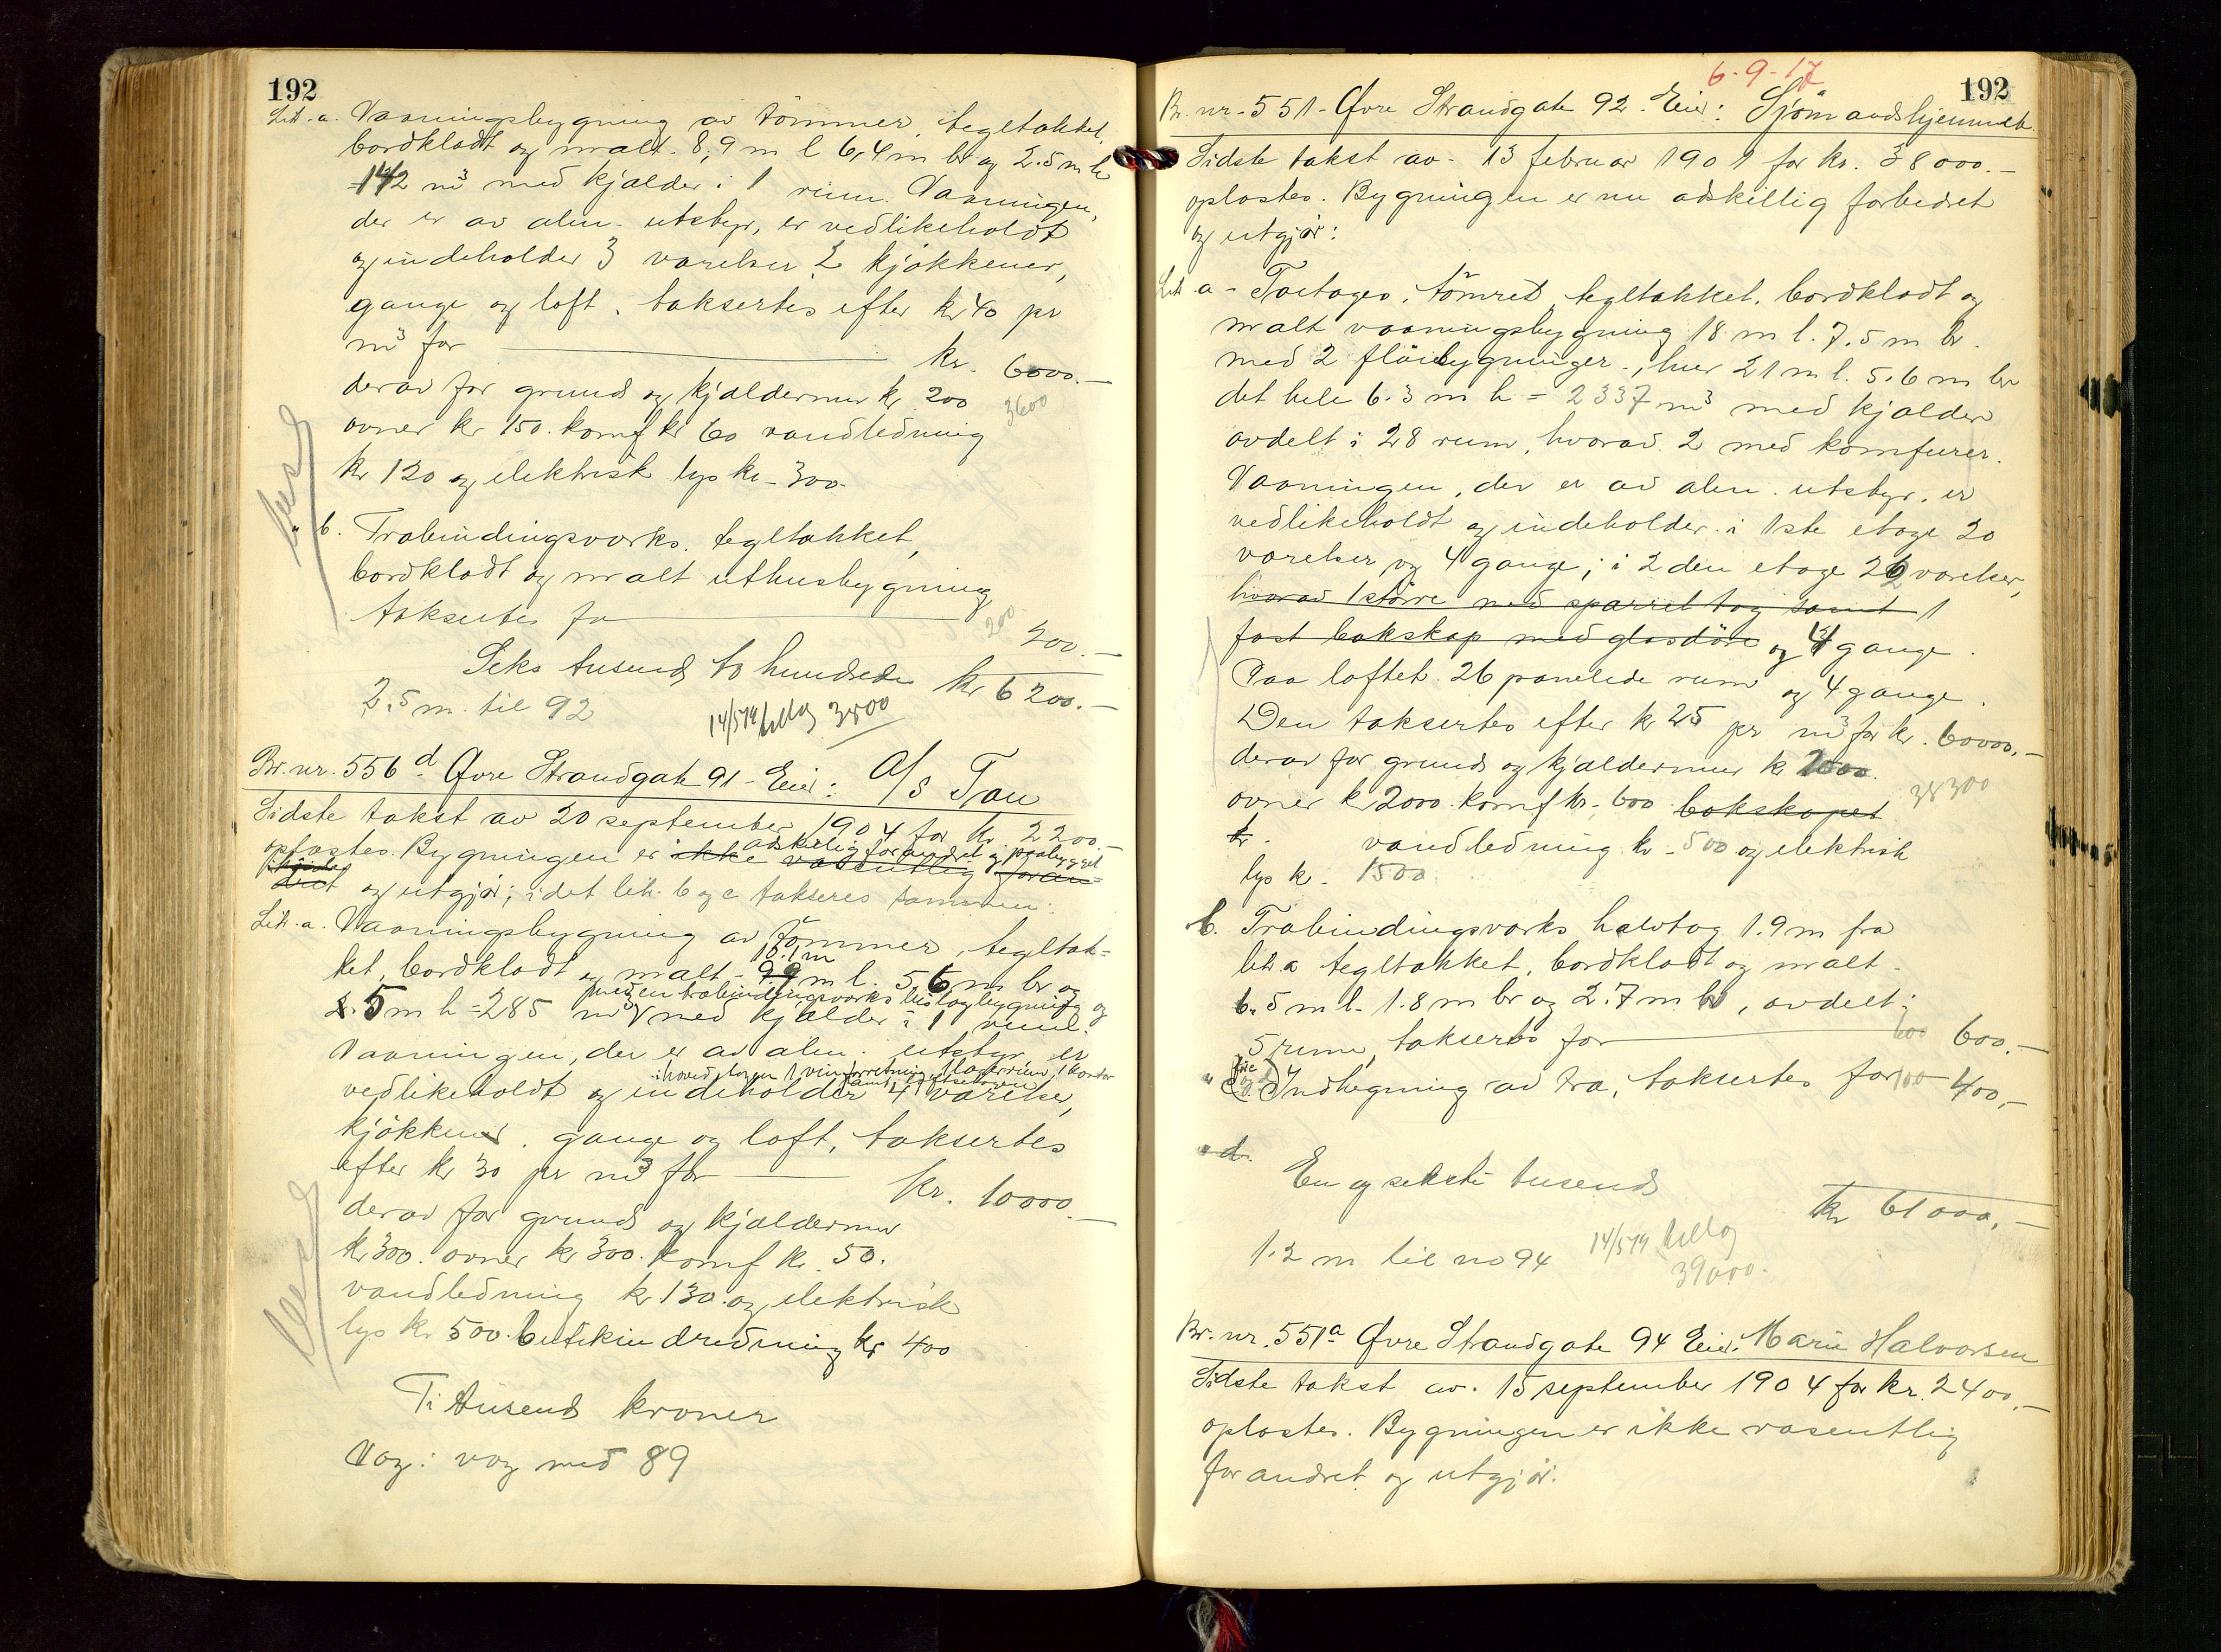 192
Lit. a. Vaaningsbygning av tömmer, tegltækket,
bordklædt og malt. 8,9 m l 6,4 m br og 2.5 m h
=142 m³ med kjælder i 1 rum. Vaaningen,
der er av alm. utstyr, er vedlikeholdt
og indeholder 3 værelser 2 kjøkkener,
gange og loft, taksertes efter kr 40 pr
m³ for kr. 6000.—
derav for grund og kjældermur kr 200 3600
ovner kr 150. komf kr 60 vandledning
kr 120 og elektrisk lys kr. 300.
" b. Træbindingsværks, tegltækket,
bordklædt og malt uthusbygning
taksertes for 200 200.—
Seks tusend to hundrede kr 6200.—
2.5 m. til 92 14/5 19 tillæg 3800
Br. nr. 556 d Øvre Strandgate 91 - Eier: A/S Tau
Sidste takst av 20 september 1904 for kr. 2200.—
adskillig forandret og paabygget
oplæstes. Bygningen er ikke væsentlig foran-
dret og utgjør; idet lit. b og c takseres sammen:
Lit. a. Vaaningsbygning av tömmer, tegltæk-
10.1 m
ket, bordklædt og malt - 9.9 m l. 5,6 m br og
med en træbindingsværks bislagbygning og
5 m h = 285 m³ med kjælder i 1 rum.
Vaaningen, der er av alm. utstyr, er
i hovedetagen 1 vinforretning 1 lagerrum, 1 kontor
samt i loftsetagen
vedlikeholdt og indeholder 4 værelser,
kjøkken, gange og loft, taksertes
efter kr 30 pr m³ for kr. 10000.—
derav for grund og kjældermur
kr 300. ovner kr 300. komf kr. 50.
vandledning kr 130. og elektrisk
lys kr 500. butikindredning kr 400
Ti tusend kroner
Væg: væg med 89
6-9-17
192
Br. nr. 551 - Øvre Strandgate 92. Eier: Sjömandshjemmet
Sidste takst av 13 februar 1901 for kr. 38000.—
oplæstes. Bygningen er nu adskillig forbedret
og utgjør:
Lit. a - Toetages, tömret, tegltækket, bordklædt og
malt vaaningsbygning 18 m l. 7.5 m br.
med 2 flöibygninger, hver 21 m l. 5.6 m br
det hele 6.3 m h = 2337 m³ med kjælder
avdelt i 28 rum, hvorav 2 med komfurer.
Vaaningen, der er av alm. utstyr, er
vedlikeholdt og indeholder i 1ste etage 20
værelser og 4 gange; i 2den etage 22 værelser,
hvorav 1 större med sparret tag samt 1
fast bokskap med glasdöre og 4 gange.
Paa loftet 26 panelede rum og 4 gange.
Den taksertes efter kr 25 pr m³ for kr. 60000.—
derav for grund og kjældermur kr 2000. 38300
ovner kr 2000. komf kr. 600 bokskapet
kr. vandledning kr. 500 og elektrisk
lys kr. 1500.
" b. Træbindingsværks halvtag 1.9 m fra
lit. a tegltækket, bordklædt og malt.
6.5 m l. 1.8 m br og 2.7 m h, avdelt i
5 rum, taksertes for 600 600.—
" c. Indhegning av træ, taksertes for 100 400.—
" d.
En og seksti tusend kr 61000.—
1.2 m til no 94 14/5 19 tillæg
39000.
Br. nr. 551 a Øvre Strandgate 94 Eier: Marie Halvorsen
Sidste takst av 15 september 1904 for kr. 2400.—
oplæstes. Bygningen er ikke væsentlig
forandret og utgjør: